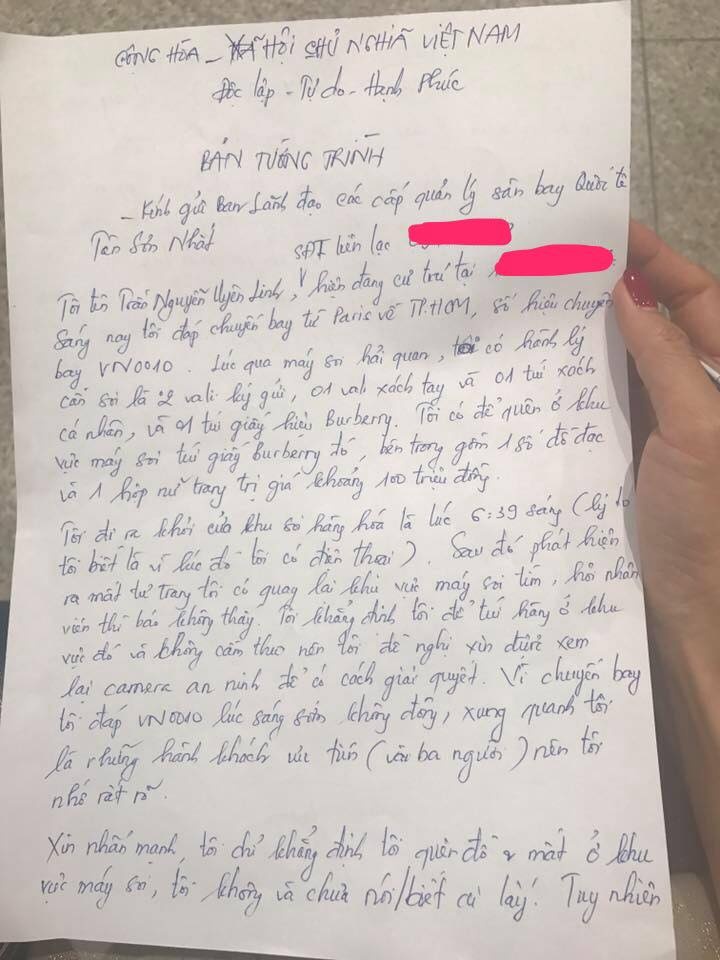 CỘNG HÒA - XÃ HỘI CHỦ NGHĨA VIỆT NAM
Độc lập - Tự do - Hạnh Phúc
BẢN TƯỜNG TRÌNH
- Kính gửi Ban Lãnh đạo các cấp quản lý sân bay Quốc tế
Tân Sơn Nhất
SĐT liên lạc
Tôi tên Trần Nguyễn Uyên Linh, hiện đang cư trú tại
Sáng nay tôi đáp chuyến bay từ Paris về TP.HCM, số hiệu chuyến
bay VN0010. Lúc qua máy soi hải quan, tôi có hành lý
cần soi là 2 vali ký gửi, 01 vali xách tay và 01 túi xách
cá nhân, và 01 túi giấy hiệu Burberry. Tôi có để quên ở khu
vực máy soi túi giấy Burberry đó, bên trong gồm 1 số đồ đạc
và 1 hộp nữ trang trị giá khoảng 100 triệu đồng.
Tôi đi ra khỏi cửa khu soi hàng hóa là lúc 6:39 sáng (lý do
tôi biết là vì lúc đó tôi có điện thoại). Sau đó phát hiện
ra mất tư trang tôi có quay lại khu vực máy soi tìm, hỏi nhân
viên thì báo không thấy. Tôi khẳng định tôi để túi hàng ở khu
vực đó và không cầm theo nên tôi đề nghị xin được xem
lại camera an ninh để có cách giải quyết. Vì chuyến bay
tôi đáp VN0010 lúc sáng sớm không đông, xung quanh tôi
là những hành khách (vài ba người) nên tôi
nhớ rất rõ.
Xin nhấn mạnh, tôi chỉ khẳng định tôi quên đồ & mất ở khu
vực máy soi, tôi không và chưa nói/biết ai lấy! Tuy nhiên